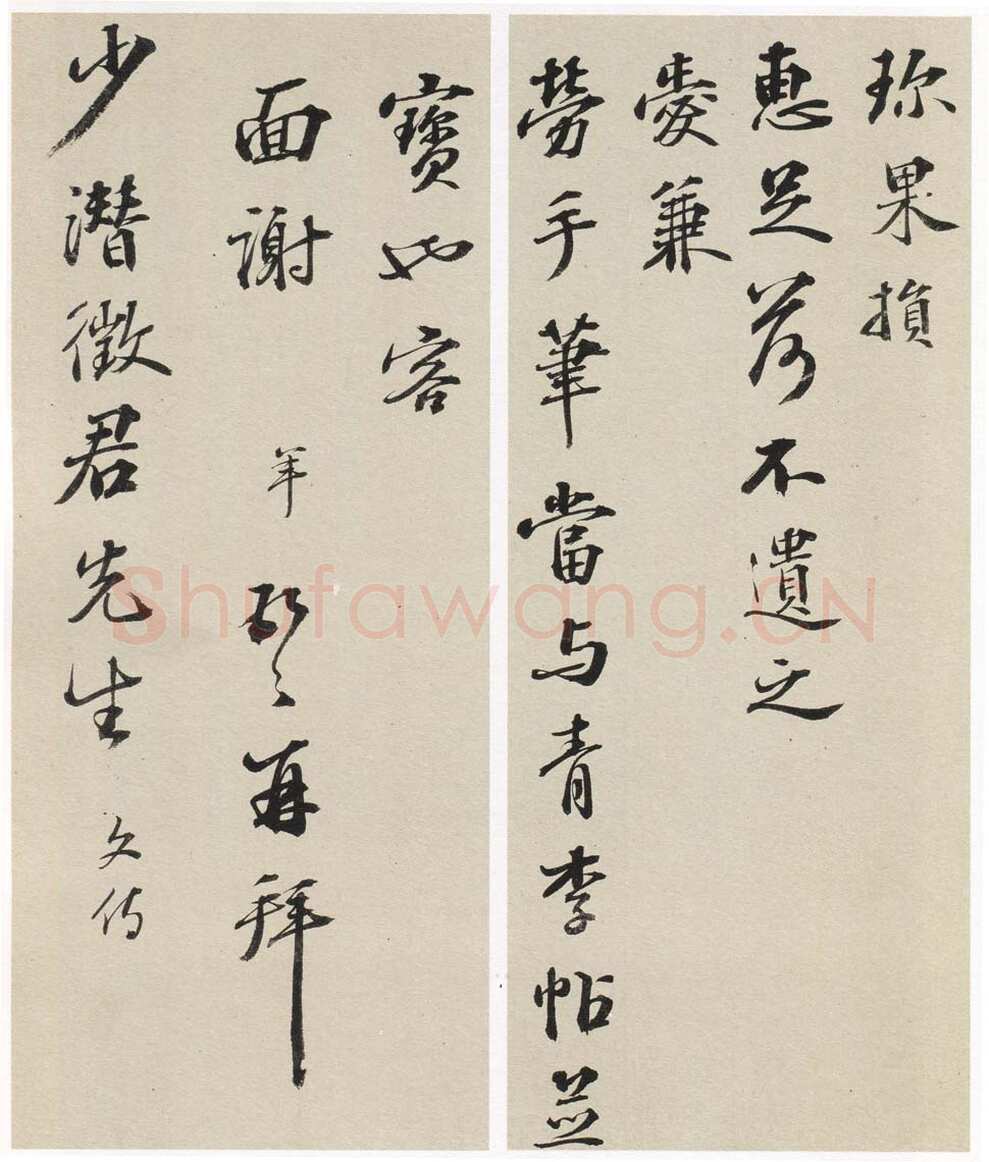 珎果損
惠足荷不遺之
愛兼
勞手筆當與青李帖並
寶也容
面謝 年 弟 再拜
少潛徵君先生 文侍
Shufawang.CN